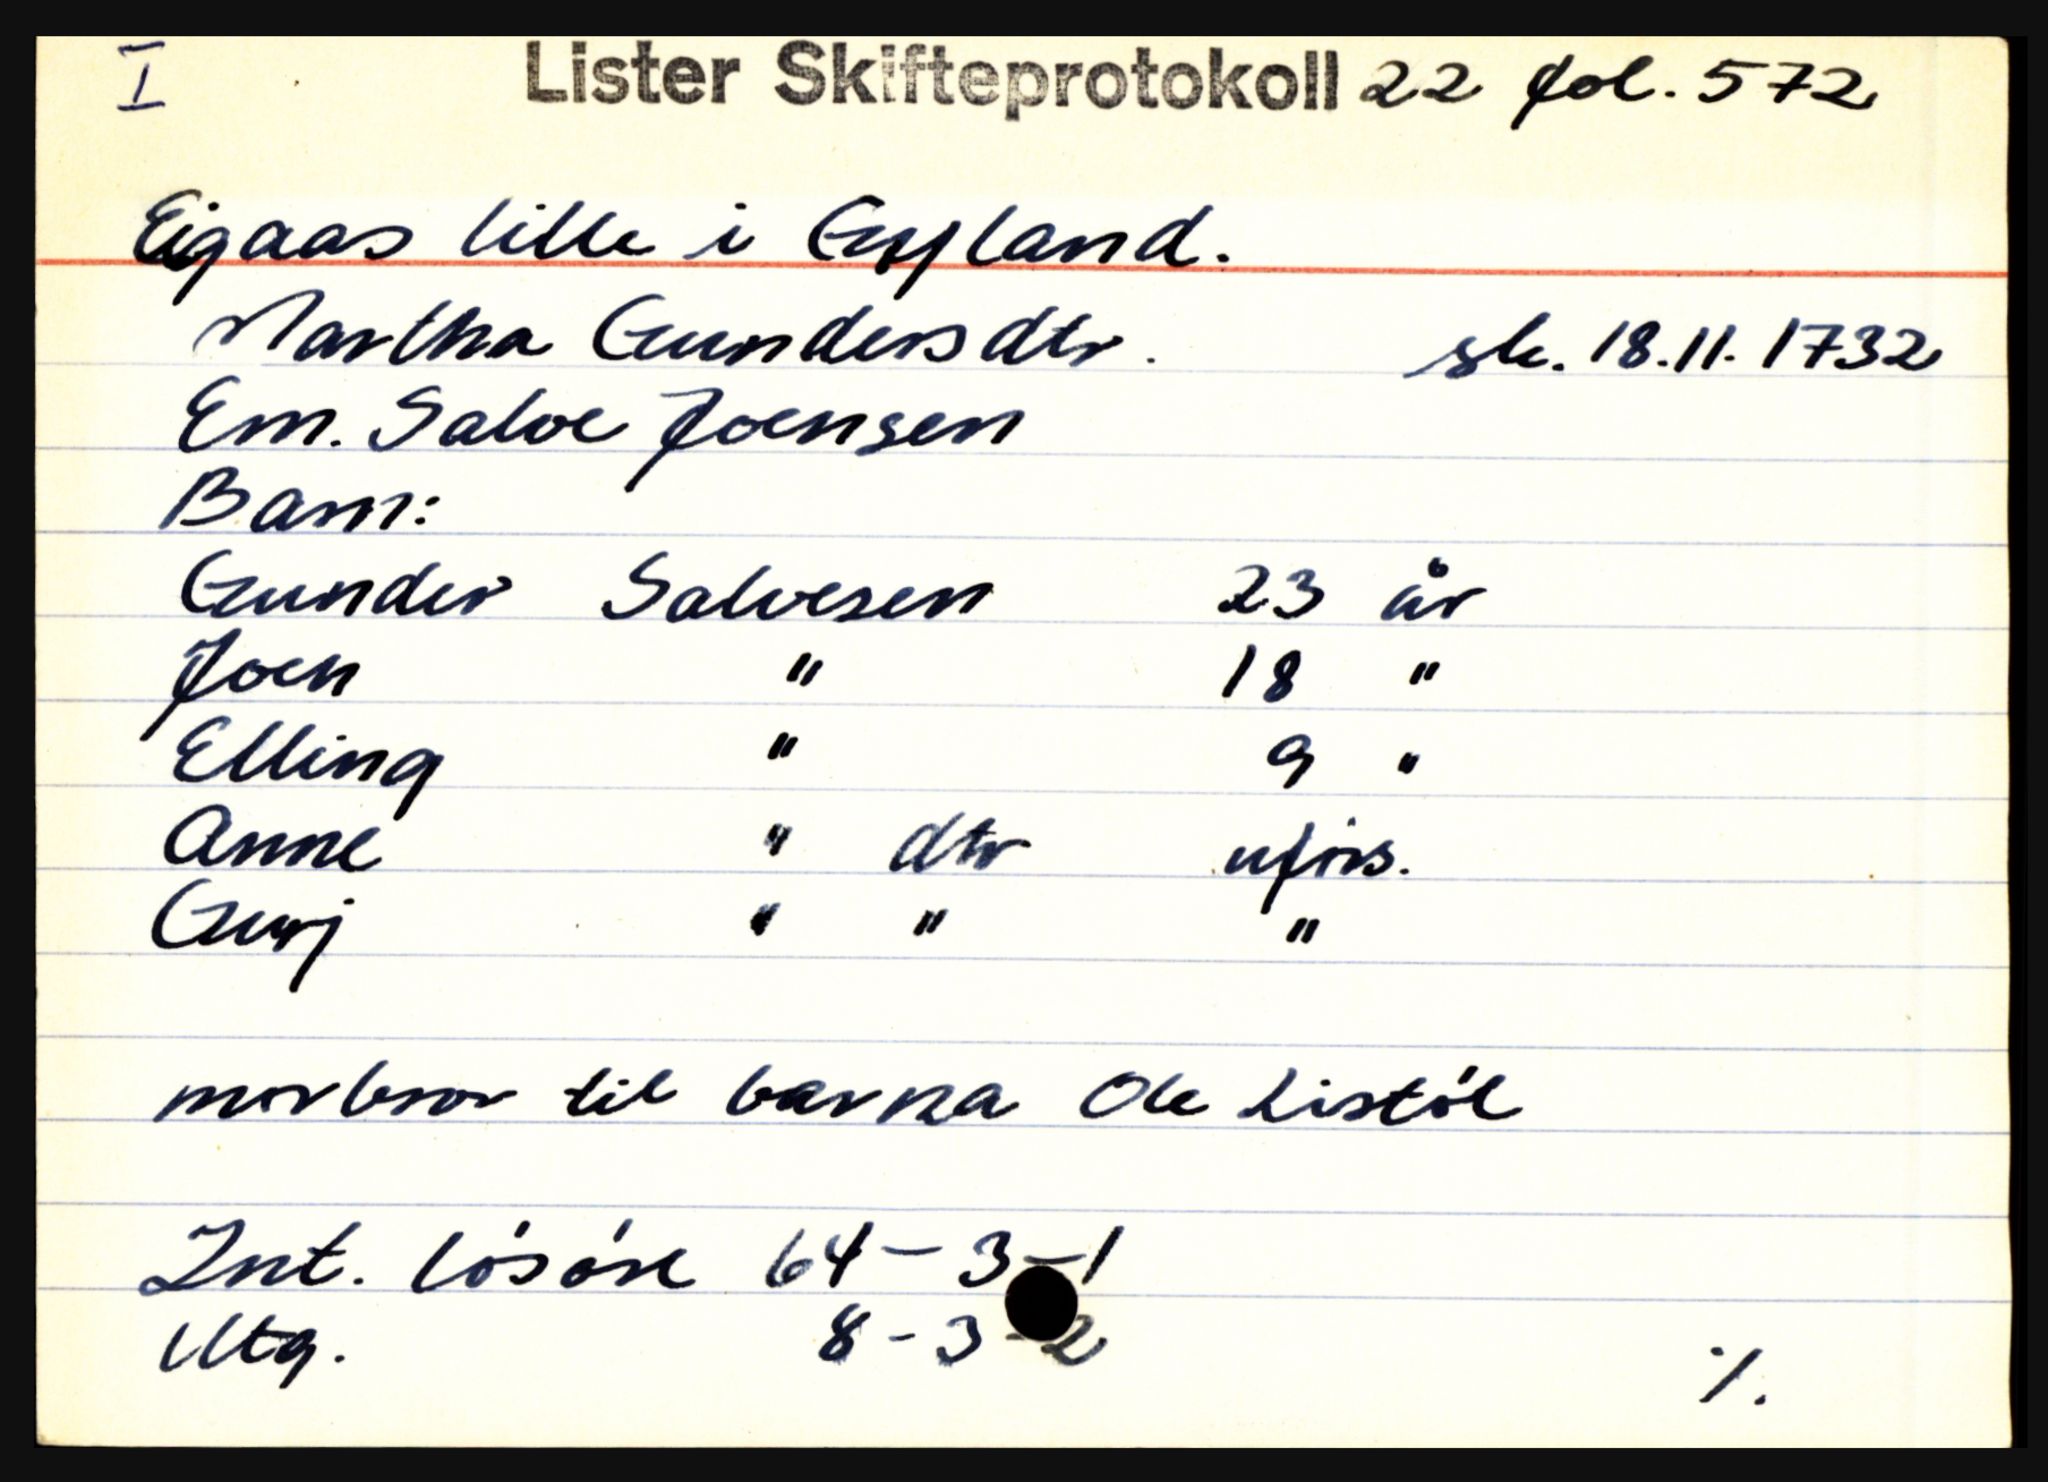 I Lister Skifteprotokoll 22 fol. 572
Eigaas lille i Gyland.
Martha Gundersdtr. sk. 18.11.1732
Em. Salve Joensen
Barn:
Gunder Salvesen 23 år
Joen " 18 "
Elling " 9 "
Anne " dtr ufors.
Gurj " " "
morbror til barna Ole Listöl
Int. lösöre 64-3-1
Utg. 8-3-2
%.